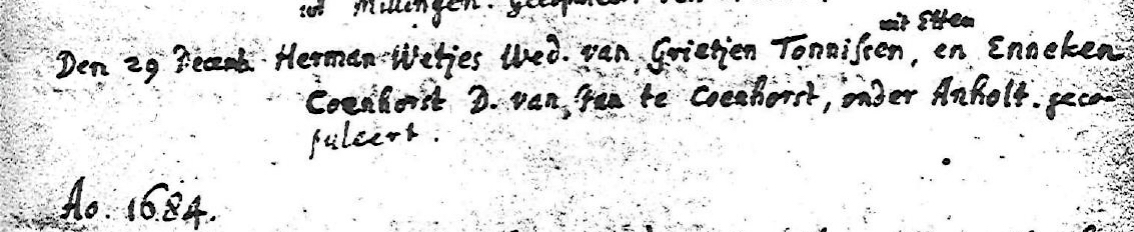 tot Millingen.
uit Etten
Den 29 Decemb. Herman Wetjes Wed. van Grietjen Tonnissen, en Enneken
Coenhorst D. van Jan te Coenhorst, onder Anholt. geco-
puleert.
Ao. 1684.